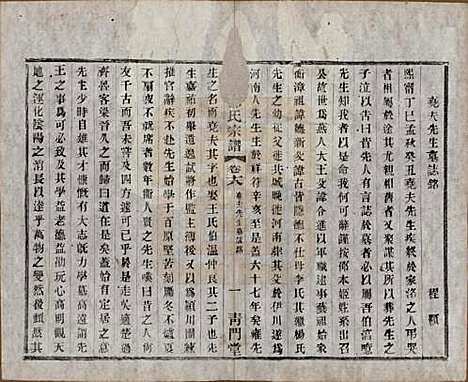 堯夫先生墓誌銘　程顥
熙甯丁巳孟秋癸丑堯夫先生疾終於家洛之人弔哭
者相屬於途其尤親相舊者又聚謀其所以葬先生之
子泣以告曰昔先人有言誌於墓者必以屬吾伯淳噫
先生知我者以是命我何可辭謹按邵本姬姓系出召
公故世爲燕人大王父諱令進以軍職逮事藝祖始家
衡漳祖諱德新父諱古皆隱德不仕母李氏其繼楊氏
先生之幼從父徙共城晚遷河南葬其親於伊川遂爲
河南人先生生於祥符辛亥至是蓋六十七年矣雍先
氏宗譜 卷六 堯夫先生墓誌銘 一 青門堂
生之名而堯夫其字也娶王氏伯溫仲良其二子也先
生之官初舉遺逸試將作監主簿後又以爲潁川團練
推官辭疾不赴先生始學於百原堅苦刻厲冬不爐夏
不扇夜不就席者數年衛人賢之先生嘆曰昔人尚
友千古而吾未嘗及四方遽可已乎於是走吳適楚過
齊魯客梁晉久之而歸曰道其在是矣蓋始有定居之意
先生少時自雄其材慷慨有大志旣學力慕高遠謂先
王之事爲可必致及其學益老德益邵玩心高明觀天
地之運化陰陽之消長以達乎萬物之變然後頹然其